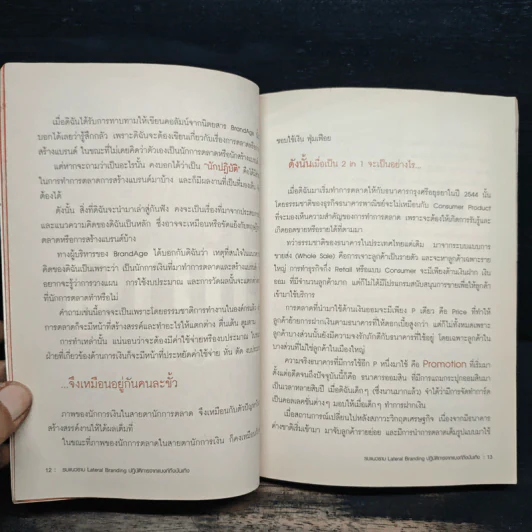 เมื่อดิฉันได้รับการทาบทามให้เขียนคอลัมน์จากนิตยสาร BrandAge
บอกได้เลยว่ารู้สึกกลัว เพราะดิฉันจะต้องเขียนเกี่ยวกับเรื่องการตลาดหรือ
สร้างแบรนด์ ในขณะที่ไม่เคยคิดว่าตัวเองเป็นนักการตลาดหรือนักสร้างแบรนด์
แต่หากจะถามว่าเป็นอะไรนั้น คงบอกได้ว่าเป็น "นักปฏิบัติ"
ในการทำการตลาดการสร้างแบรนด์มาบ้าง และก็มีผลงานที่เป็นที่
ต้องได้
ดังนั้น สิ่งที่ดิฉันจะนำมาเล่าสู่กันฟัง คงจะเป็นเรื่องที่มาจากประสบ
และแนวความคิดของดิฉันเป็นหลัก ซึ่งอาจจะเหมือนหรือขัดแย้งกับ
ตลาดหรือการสร้างแบรนด์บ้าง
ทางผู้บริหารของ BrandAge ได้บอกกับดิฉันว่า เหตุที่สนใจใน
คิดของดิฉันเป็นเพราะว่า เป็นนักการเงินที่มาทำการตลาดและสร้างแบรนด์
อยากจะรู้ว่าการวางแผน การใช้งบประมาณ และการวัดผลนั้นจะ
ที่นักการตลาดทำหรือไม่
คำถามเช่นนี้อาจจะเป็นเพราะโดยธรรมชาติการทำงานในองค์กร
การตลาดก็จะมีหน้าที่สร้างสรรค์และทำอะไรให้แตกต่าง ตื่นเต้น
การทำเหล่านั้น แน่นอนว่าจะต้องมีค่าใช้จ่ายหรืองบประมาณ
ฝ่ายที่เกี่ยวข้องด้านการเงินก็จะมีหน้าที่ประหยัดค่าใช้จ่าย หั่น ตัด
...จึงเหมือนอยู่กันคนละขั้ว
ภาพของนักการเงินในสายตานักการตลาด จึงเหมือนกับตัว
สร้างสรรค์งานให้ได้ผลเต็มที่
ในขณะที่ภาพของนักการตลาดในสายตานักการเงิน ก็คงเหมือน
12 : Lateral Branding
ชอบใช้เงิน ฟุ่มเฟือย
ดังนั้นเมื่อเป็น 2 in 1 จะเป็นอย่างไร...
เมื่อดิฉันมาเริ่มทำการตลาดให้กับธนาคารกรุงศรีอยุธยาในปี 2544 นั้น
โดยธรรมชาติของธุรกิจธนาคารพาณิชย์จะไม่เหมือนกับ Consumer Product
ที่จะมองเห็นความสำคัญของการทำการตลาด เพราะจะต้องให้เกิดการรับรู้และ
เกิดยอดขายหรือรายได้ที่ตามมา
ทว่าธรรมชาติของธนาคารในประเทศไทยแต่เดิม มาจากระบบแบบการ
ขายส่ง (Whole Sale) คือการเจาะลูกค้าเป็นรายตัว และจะหาลูกค้าเฉพาะราย
ใหญ่ การทำธุรกิจถึง Retail หรือแบบ Consumer จะมีเพียงด้านเงินฝาก เงิน
ออม ที่มีจำนวนลูกค้ามาก แต่ก็ไม่ได้มีโปรแกรมสนับสนุนการขายเพื่อให้ลูกค้า
เข้ามาใช้บริการ
การตลาดที่นำมาใช้ด้านเงินออมจะมีเพียง P เดียว คือ Price ที่ทำให้
ลูกค้าย้ายการฝากเงินตามธนาคารที่ให้ดอกเบี้ยสูงกว่า แต่ก็ไม่ทั้งหมดเพราะ
ลูกค้าบางส่วนนั้นยังมีความจงรักภักดีกับธนาคารที่ใช้อยู่ โดยเฉพาะลูกค้าใน
บางส่วนที่ไม่ใช่ลูกค้าในเมืองใหญ่
ความจริงธนาคารที่มีการใช้อีก P หนึ่งมาใช้ คือ Promotion ที่เริ่มมา
ตั้งแต่อดีตจนถึงปัจจุบันนี้ก็คือ ธนาคารออมสิน ที่มีการแถมกระปุกออมสินมา
เป็นเวลาหลายสิบปี เมื่อดิฉันเด็กๆ (ซึ่งนานมากแล้ว) จำได้ว่ามีการจัดทำการ์ด
เป็นคอลเลคชั่นต่างๆ มอบให้เมื่อเด็กๆ ทำการฝากเงิน
เมื่อสถานการณ์เปลี่ยนไปหลังสภาวะวิกฤตเศรษฐกิจ เนื่องจากมีธนาคาร
ต่างชาติเริ่มเข้ามา มาจับลูกค้ารายย่อย และมีการนำการตลาดเต็มรูปแบบมาใช้
Lateral Branding : 13